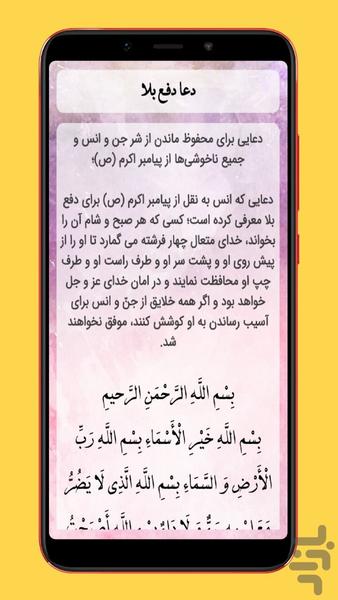 دعا دفع بلا
دعایی برای محفوظ ماندن از شر جن و انس و
جمیع ناخوشی‌ها از پیامبر اکرم (ص)؛
دعایی که انس به نقل از پیامبر اکرم (ص) برای دفع
بلا معرفی کرده است؛ کسی که هر صبح و شام آن را
بخواند، خدای متعال چهار فرشته می گمارد تا او را از
پیش روی او و پشت سر او و طرف راست او و طرف
چپ او محافظت نمایند و در امان خدای عز و جل
خواهد بود و اگر همه خلایق از جنّ و انس برای
آسیب رساندن به او کوشش کنند، موفق نخواهند
شد.
بِسْمِ اللَّهِ الرَّحْمَنِ الرَّحِيمِ
بِسْمِ اللَّهِ خَيْرِ الْأَسْمَاءِ بِسْمِ اللَّهِ رَبِّ
الْأَرْضِ وَ السَّمَاءِ بِسْمِ اللَّهِ الَّذِي لَا يَضُرُّ